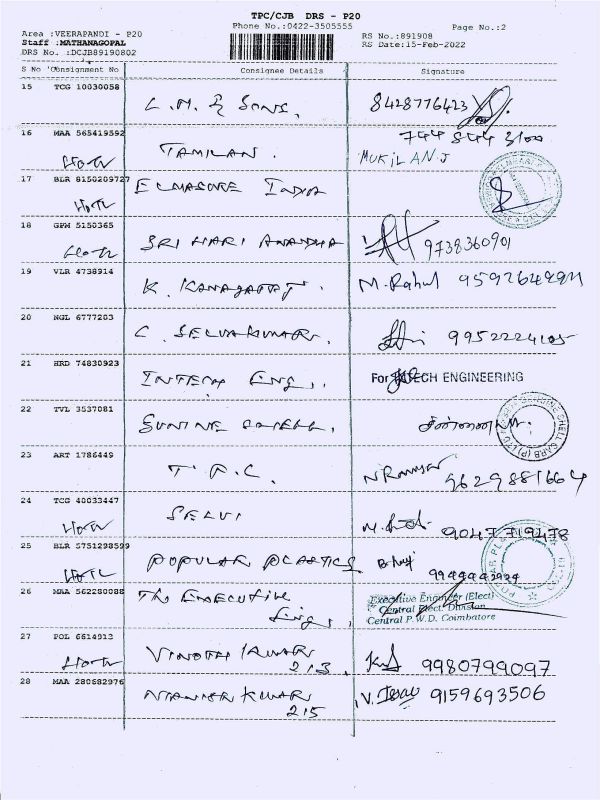 TPC/CJB DRS - P20
Phone No.:0422-3505555
Page No.:2
Area :VEERAPANDI - P20
Staff :MATHANAGOPAL
DRS No. :DCJB89190802
RS No.:891908
RS Date:15-Feb-2022
S No Consignment No Consignee Details Signature
15 TCG 10030058 L.M. & SONS. 8428776423
16 MAA 565419592 TAMILAN. 744 844 3100
MUKILAN.J
17 BLR 8150209727 ELMEASURE INDIA
18 GPM 5150365 SRI HARI ANANDHA 9738360901
19 VLR 4738914 K. KANAGARAJ. M. Rahul
20 NGL 6777203 C. SELVAKUMAR.
21 HRD 74830923 INTECH Eng. For INTECH ENGINEERING
22 TVL 3537081 SUNINE SHELL.
23 ART 1786449 T.P.C. 9629881664
24 TCG 40033447 SELVI 9047719478
25 BLR 5751298599 POPULAR PLASTICS
26 MAA 562280088 The EXECUTIVE Eng.
Executive Engineer (Elect)
Central Elect. Division
Central P.W.D. Coimbatore
27 POL 6614912 VINOTH KUMAR 213 99807 99097
28 MAA 280682976 KUMAR 215 9159693506